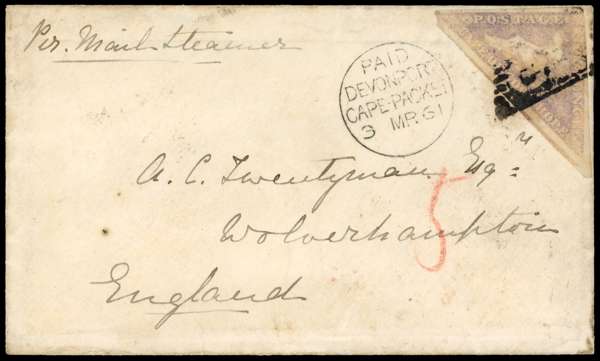 Per Mail Steamer
POSTAGE
PAID
DEVONPORT
CAPE-PACKET
3 MR 61
A. C. Twentyman Esqre
5
Wolverhampton
England